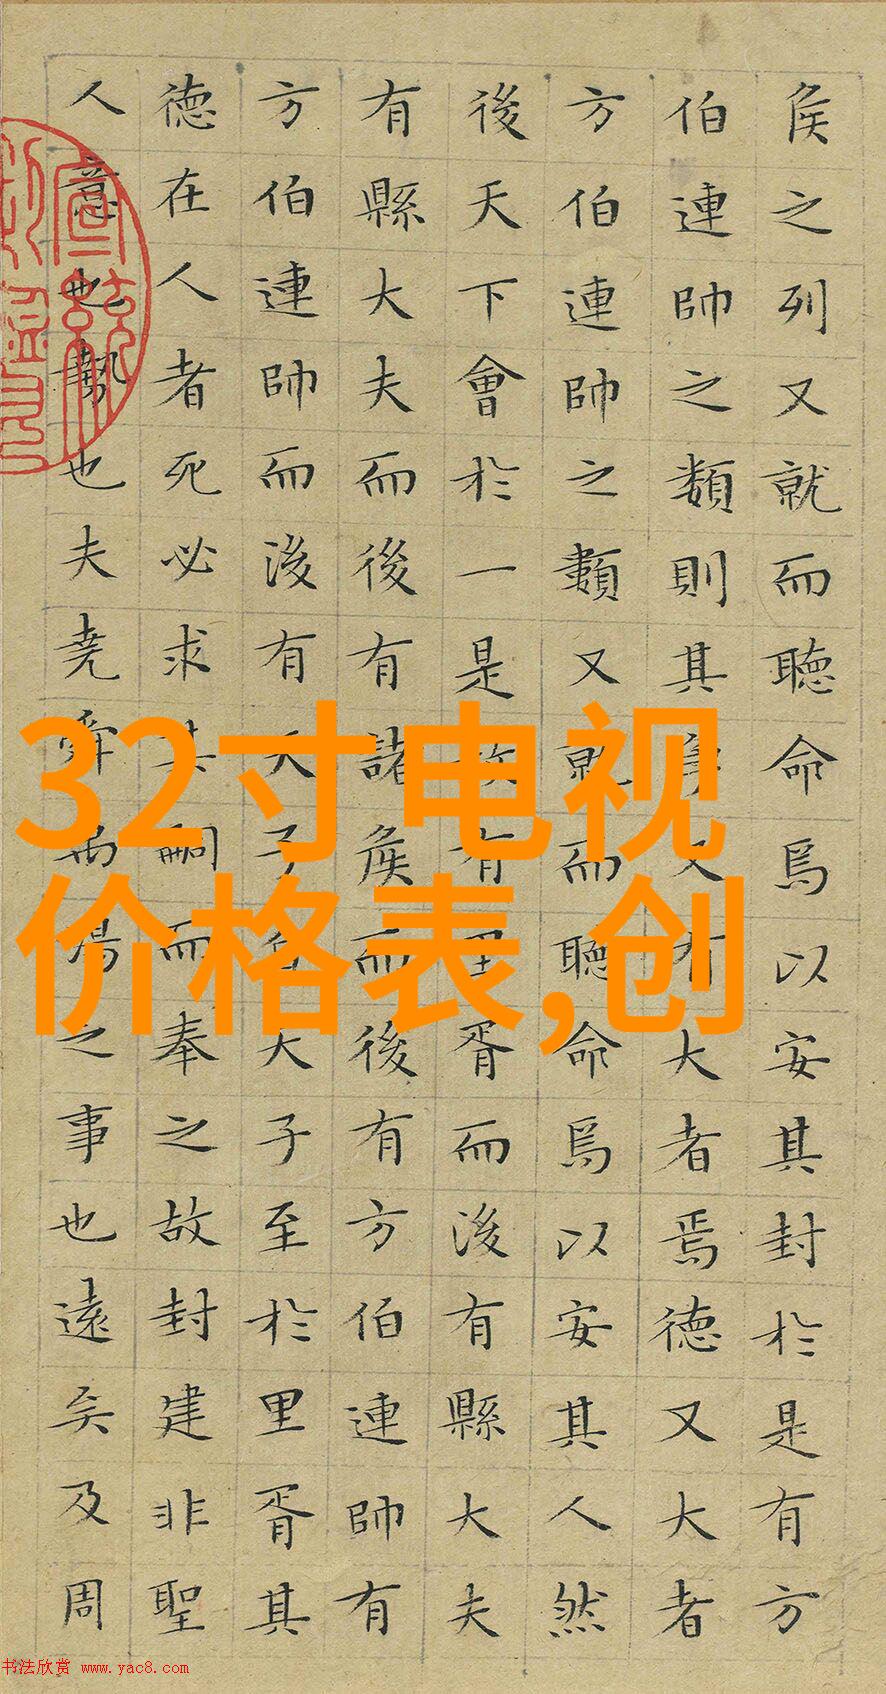 侯之列又就而聽命焉以安其封於是有方
伯連帥之類則其爭又有大者焉德又大者
方伯連帥之類又就而聽命焉以安其人然
後天下會於一是故有里胥而後有縣大夫
有縣大夫而後有諸侯而後有方伯連帥有
方伯連帥而後有天子自天子至於里胥其
德在人者死必求其嗣而奉之故封建非聖
人意也勢也夫堯舜禹湯之事也遠矣及周
32寸电视
价格表,创
书法欣赏 www.yac8.com